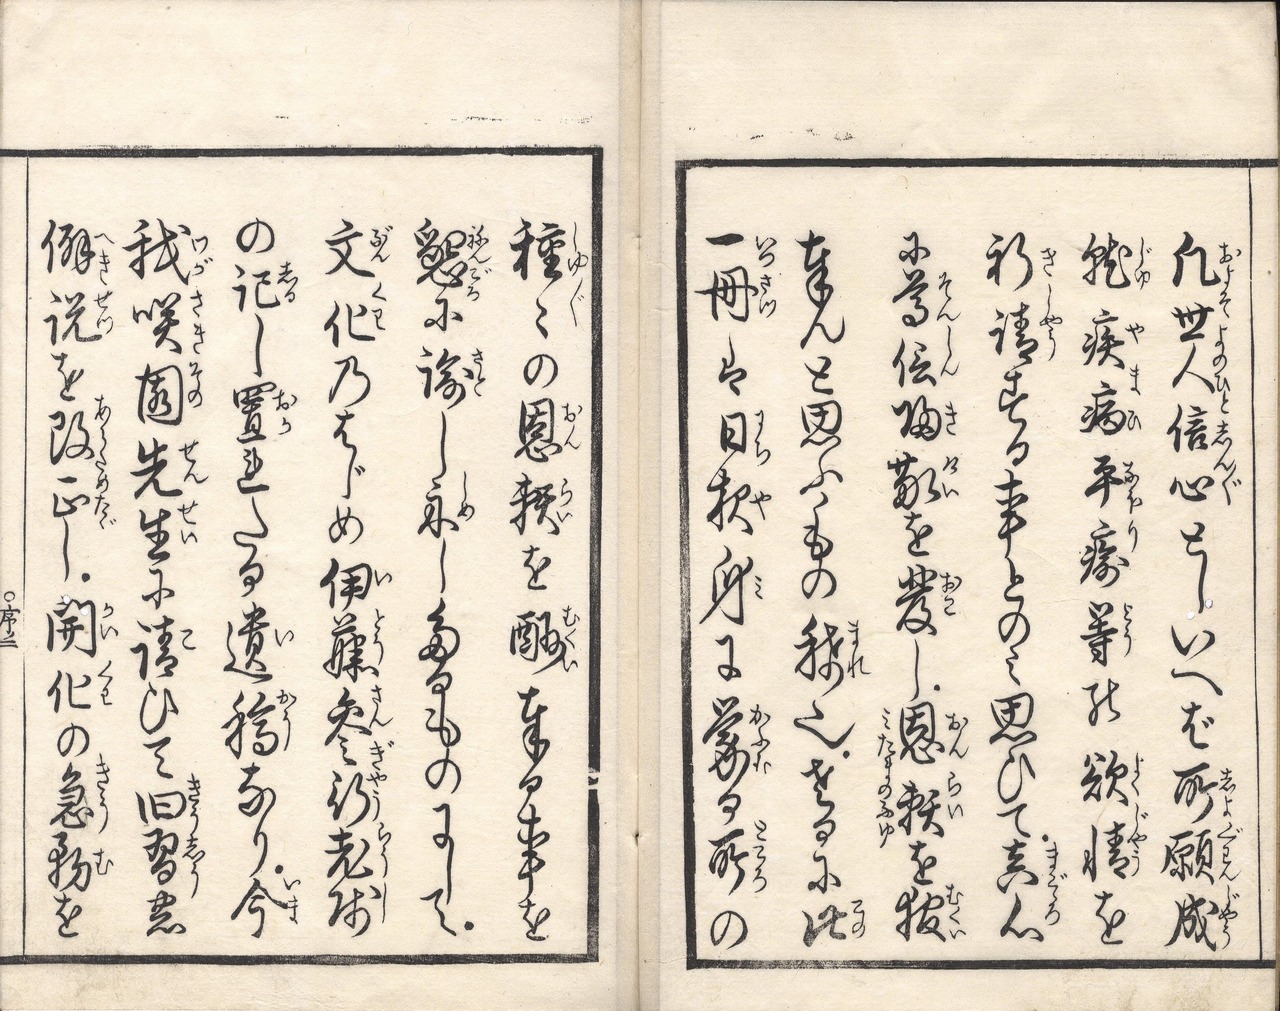 凡世人信心としいへば所願成
就疾病平癒等の欲情を
祈請する事とのみ思ひて真心
に尊信帰敬を発し恩頼を報
奉んと思ふもの稀也さるに此
一冊は日夜身に蒙る所の
種々の恩頼を酬奉る事を
懇に諭し示したるものにして
文化乃はじめ伊藤参行老師
の記し置れたる遺稿なり今
我咲園先生に請ひて旧習
僻説を改正し開化の急務を